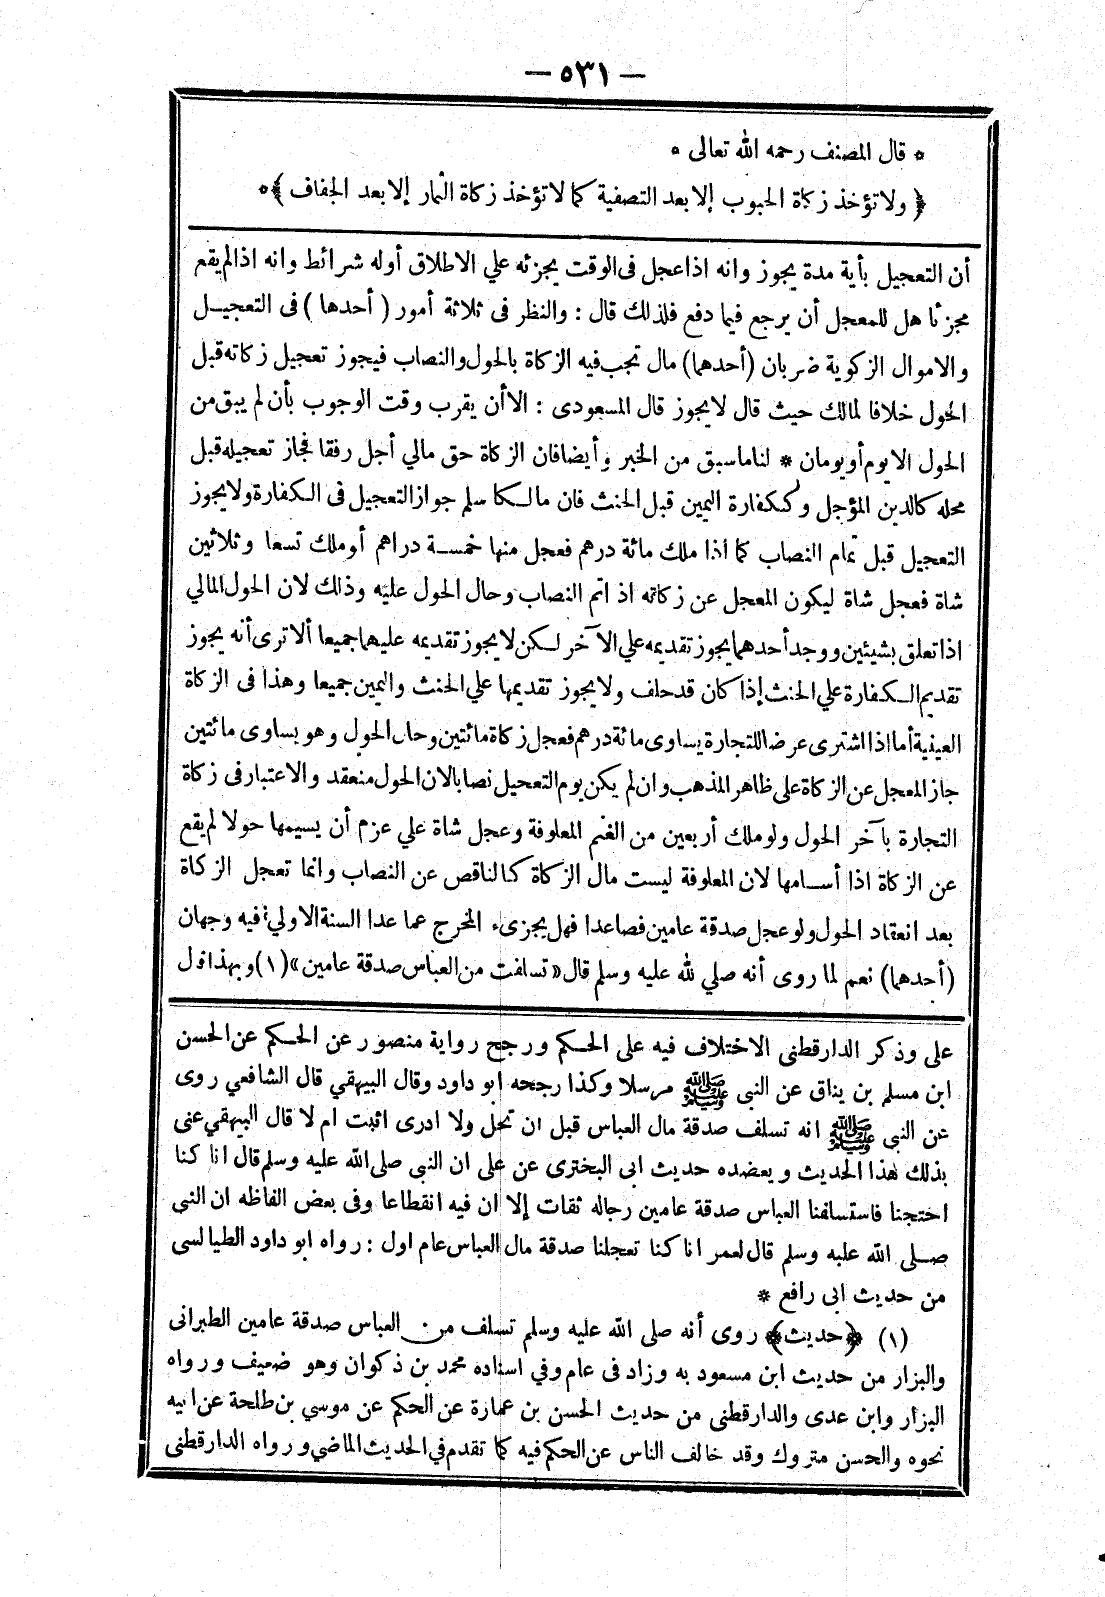 — ٥٣١ —
* قال المصنف رحمه الله تعالى *
﴿ ولا تؤخذ زكاة الحبوب إلا بعد التصفية كما لا تؤخذ زكاة الثمار إلا بعد الجفاف ﴾*
أن التعجيل بأية مدة يجوز وانه اذا عجل فى الوقت يجزئه علي الاطلاق أوله شرائط وانه اذا لم يقع
مجزئا هل للمعجل أن يرجع فيما دفع فلذلك قال : والنظر فى ثلاثة أمور ( أحدها ) فى التعجيل
والاموال الزكوية ضربان (أحدهما) مال تجب فيه الزكاة بالحول والنصاب فيجوز تعجيل زكاته قبل
الحول خلافا لمالك حيث قال لا يجوز قال المسعودى : الا أن يقرب وقت الوجوب بأن لم يبق من
الحول الا يوم أو يومان * لنا ما سبق من الخبر وأيضا فان الزكاة حق مالي أجل رفقا فجاز تعجيله قبل
محله كالدين المؤجل وككفارة اليمين قبل الحنث فان مالكا سلم جواز التعجيل فى الكفارة ولا يجوز
التعجيل قبل تمام النصاب كما اذا ملك مائة درهم فعجل منها خمسة دراهم أو ملك تسعا وثلاثين
شاة فعجل شاة ليكون المعجل عن زكاته اذ اتم النصاب وحال الحول عليه وذلك لان الحول المالي
اذا تعلق بشيئين ووجد أحدهما يجوز تقديمه علي الآخر لكن لا يجوز تقديمه عليهما جميعا ألا ترى أنه يجوز
تقديم الكفارة علي الحنث إذا كان قد حلف ولا يجوز تقديمها علي الحنث واليمين جميعا وهذا فى الزكاة
العينية أما اذا اشترى عرضا للتجارة يساوى مائة درهم فعجل زكاة مائتين وحال الحول وهو يساوى مائتين
جاز المعجل عن الزكاة على ظاهر المذهب وان لم يكن يوم التعجيل نصابا لان الحول منعقد والاعتبار فى زكاة
التجارة بآخر الحول ولو ملك أربعين من الغنم المعلوفة وعجل شاة علي عزم أن يسيمها حولا لم يقع
عن الزكاة اذا أسامها لان المعلوفة ليست مال الزكاة كالناقص عن النصاب وانما تعجل الزكاة
بعد انعقاد الحول ولو عجل صدقة عامين فصاعدا فهل يجزىء المخرج عما عدا السنة الاولي؟ فيه وجهان
(أحدهما) نعم لما روى أنه صلي لله عليه وسلم قال « تسلفت من العباس صدقة عامين » (١) وبهذا قال
على وذكر الدارقطنى الاختلاف فيه على الحكم ورجح رواية منصور عن الحكم عن الحسن
ابن مسلم بن يناق عن النبى ﷺ مرسلا وكذا رجحه ابو داود وقال البيهقي قال الشافعي روى
عن النبى ﷺ انه تسلف صدقة مال العباس قبل ان تحل ولا ادرى اثبت ام لا قال البيهقي عنى
بذلك هذا الحديث ويعضده حديث ابى البخترى عن على ان النبى صلى الله عليه وسلم قال انا كنا
احتجنا فاستسلفنا العباس صدقة عامين رجاله ثقات إلا ان فيه انقطاعا وفى بعض الفاظه ان النبى
صلى الله عليه وسلم قال لعمر انا كنا تعجلنا صدقة مال العباس عام اول : رواه ابو داود الطيالسى
من حديث ابى رافع *
(١) ﴿ حديث ﴾ روى أنه صلى الله عليه وسلم تسلف من العباس صدقة عامين الطبرانى
والبزار من حديث ابن مسعود به وزاد فى عام وفي اسناده محمد بن ذكوان وهو ضعيف ورواه
البزار وابن عدى والدارقطنى من حديث الحسن بن عمارة عن الحكم عن موسي بن طلحة عن ابيه
نحوه والحسن متروك وقد خالف الناس عن الحكم فيه كما تقدم في الحديث الماضي ورواه الدارقطنى